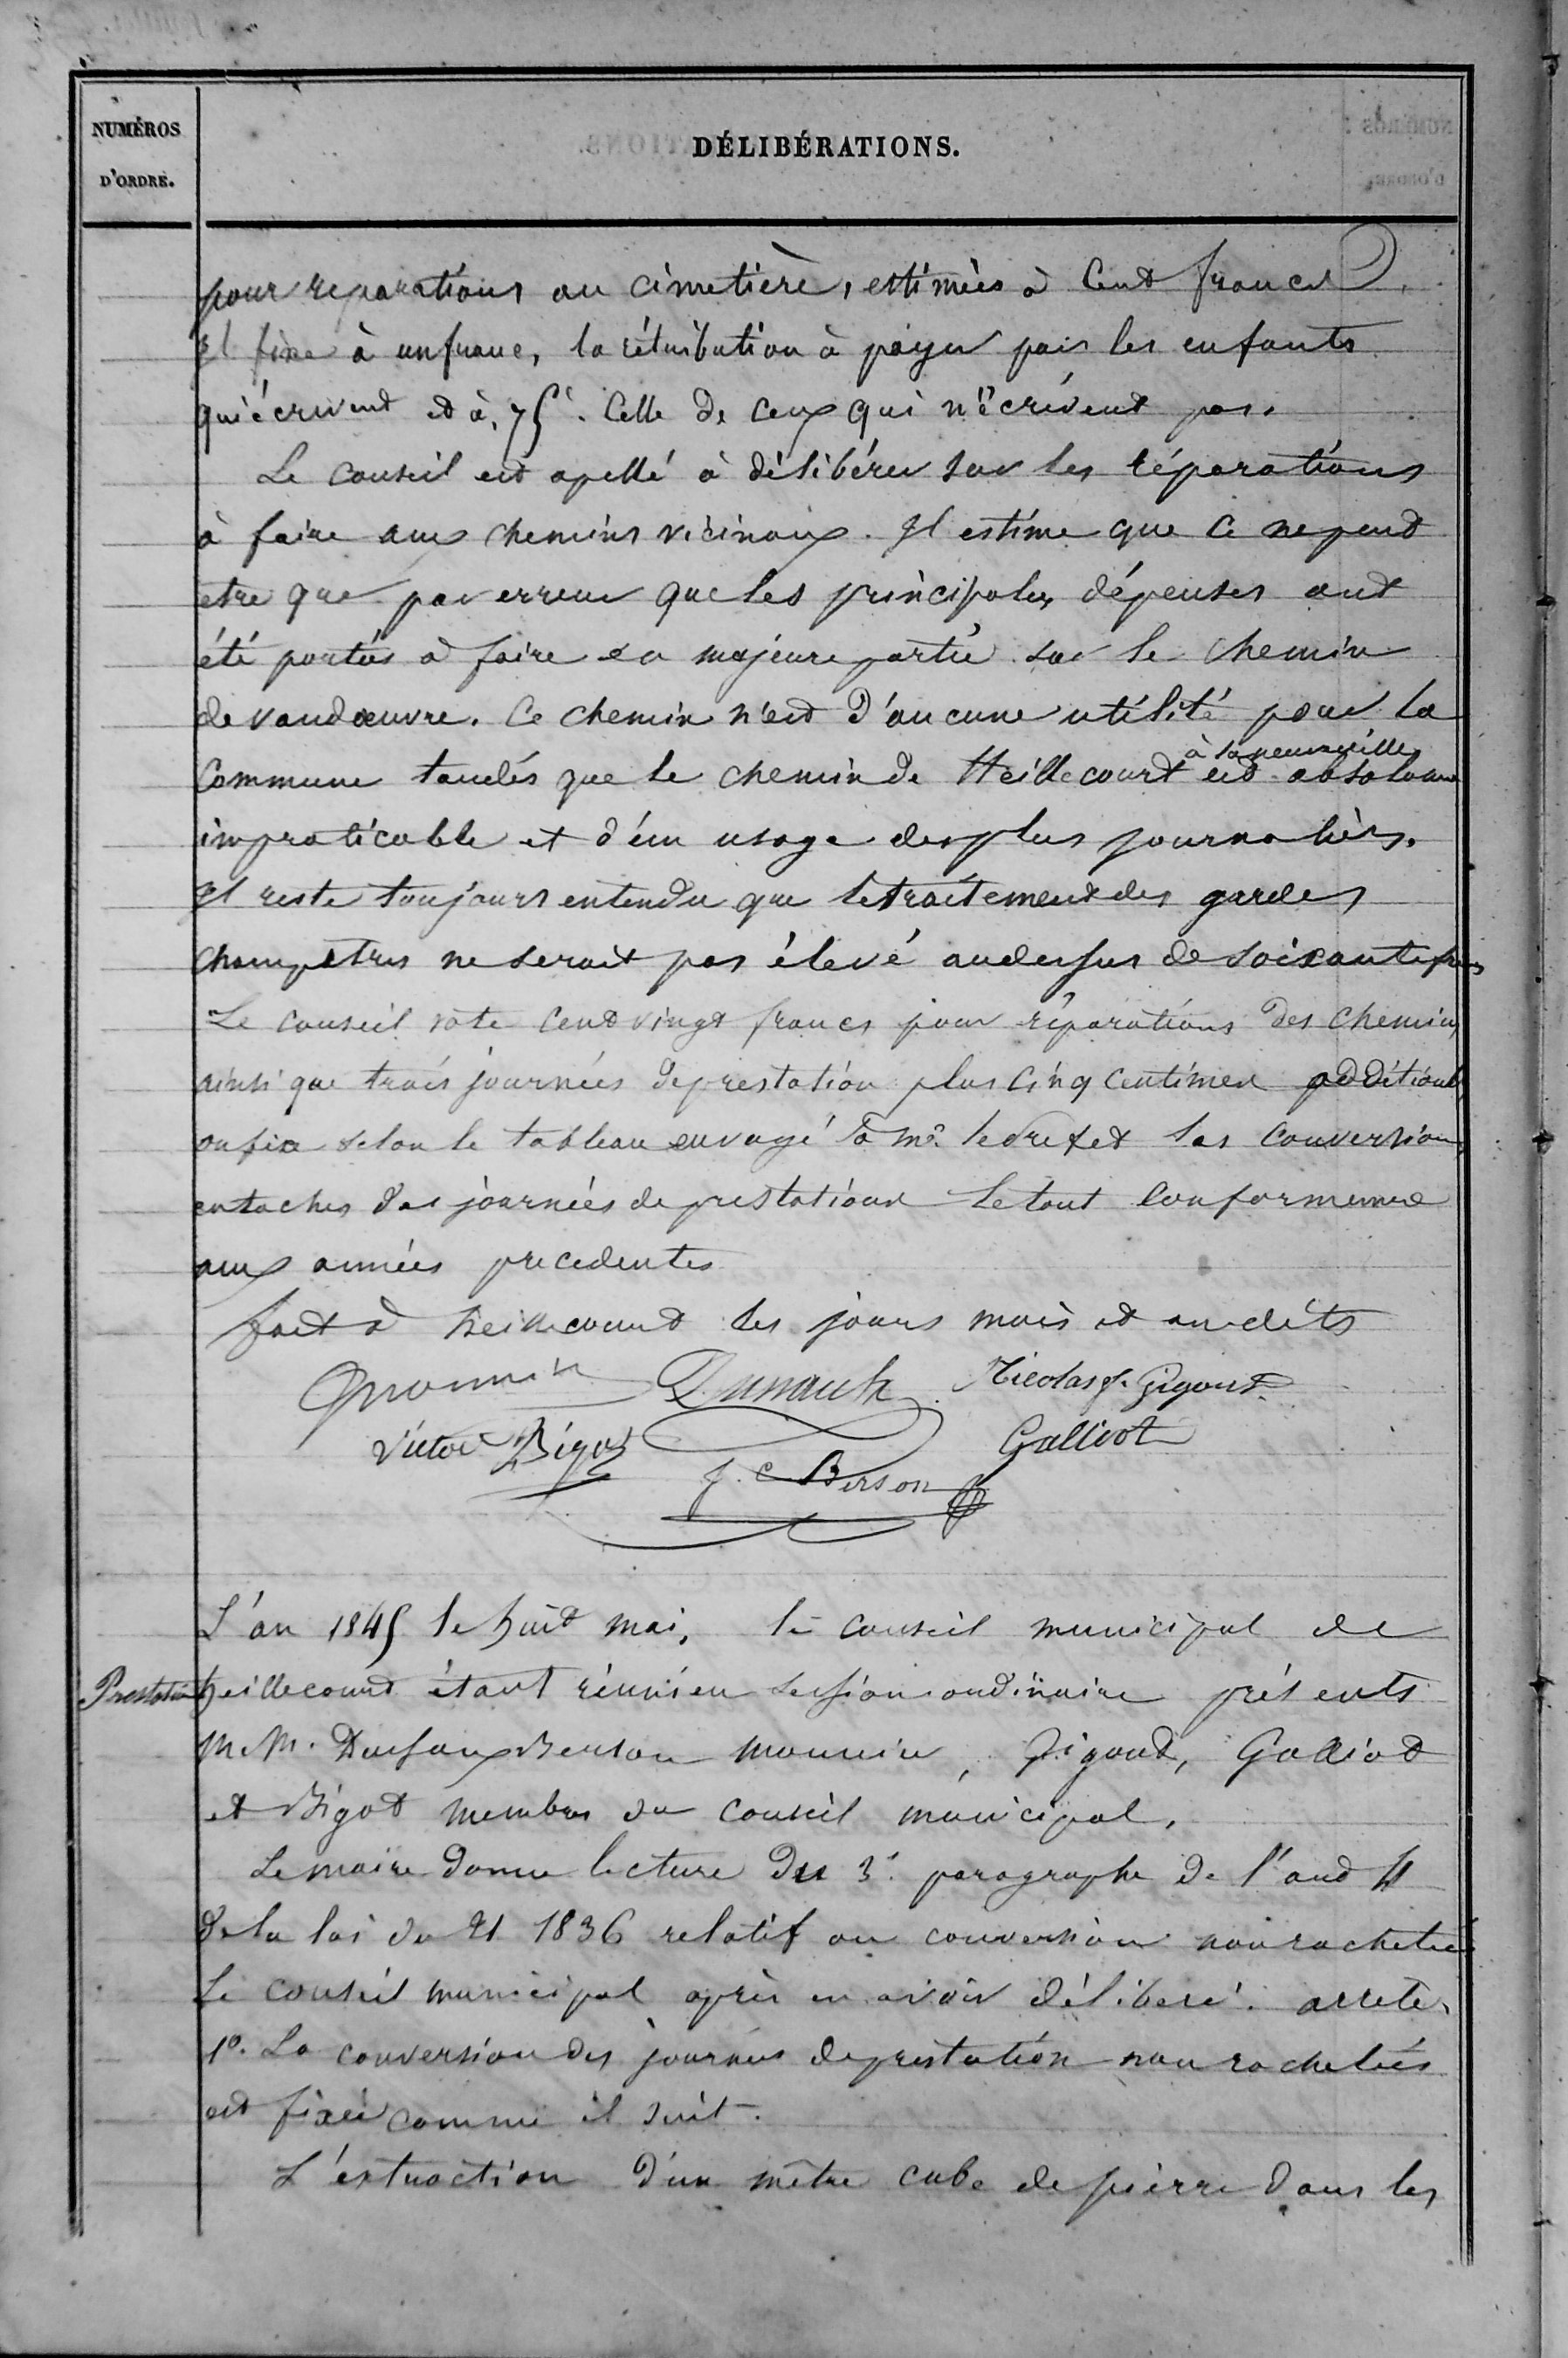 NUMÉROS
D'ORDRE.
DÉLIBÉRATIONS.
pour reparations au cimetière, estimées à Cent francs
Il fixe à un franc, la rétribution à payer par les enfants
qui écrivent et à, 75c. Celle de ceux qui n'écrivent pas.
Le Conseil est apellé à délibérer sur les réparations
à faire aux chemins vicinaux. Il estime que ce ne peut
etre que par erreur que les principales dépenses ont
été portées à faire en majeure partie sur le chemin
de vandœuvre. Ce chemin n'est d'aucune utilité pour la
à laneuveville
Commune tandis que le chemin de Heillecourt est absolument
impraticable et d'un usage des plus journaliers.
Il reste toujours entendu que le traitement des gardes
champetres ne serait pas élevé audessus de soixante frs
Le conseil vote Cent vingt francs pour réparations des chemins
ainsi que trois journées de prestation plus Cinq centimes additionls
on fixe selon le tableau envoyé à Mr. le Prefet les Conversions
en taches des journées de prestations Le tout Conformement
aux années precedentes
fait à heillecourt les jours mois et an dits
Monnin Nicolas f. Gigout
Victor Bigot Galliot
J. C Berson
L'an 1845 le huit mai, le conseil municipal de
Prestation
heillecourt étant réuni en session ordinaire présents
M.M. Berson Monnin, Gigout, Galliot
et Bigot membres du Conseil municipal.
Le maire donne lecture du 3e. paragraphe de l'art 4
de la loi du 21 1836 relatif au conversion non rachetées
Le Conseil municipal après en avoir déliberé. arrete,
1º. La conversion des journées de prestation non rachetées
est fixée comme il suit.
L'extraction d'un mètre cube de pierre dans les